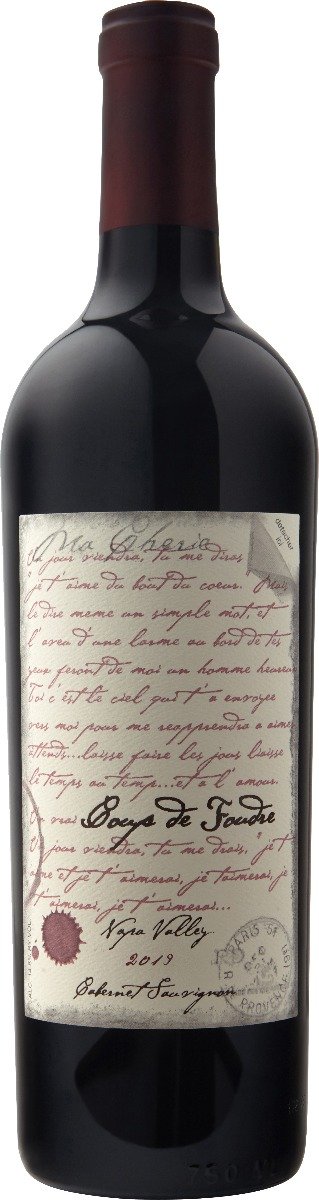 Ma Cherie
detacher
ici
Un jour viendra, tu me diras
"je t'aime du bout du coeur." Mais
le dire meme un simple mot, et
l'aveu d'une larme au bord de tes
yeux feront de moi un homme heureux
Toi c'est le ciel qui t'a envoyee
vers moi pour me reapprendre a aimer
attends...laisse faire les jours laisse
le temps au temps...et a l'amour.
Un vrai Coup de Foudre
Un jour viendra, tu me drais, "je t'
aime et je t'aimerai, je taimerai, je
t'aimerai, je t'aimerai...
Napa Valley
2019
Cabernet Sauvignon
PARIS
PROVENCE
750 ML